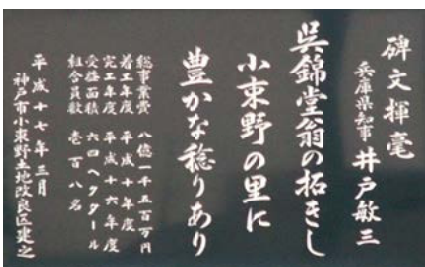 碑文揮毫
兵庫県知事 井戸敏三
呉錦堂翁の拓きし
小束野の里に
豊かな稔りあり
総事業費 八億一千五百万円
着工年度 平成十年度
完工年度 平成十六年度
受益面積 六四ヘクタール
組合員数 壱百八名
平成十七年三月
神戸市小束野土地改良区建之